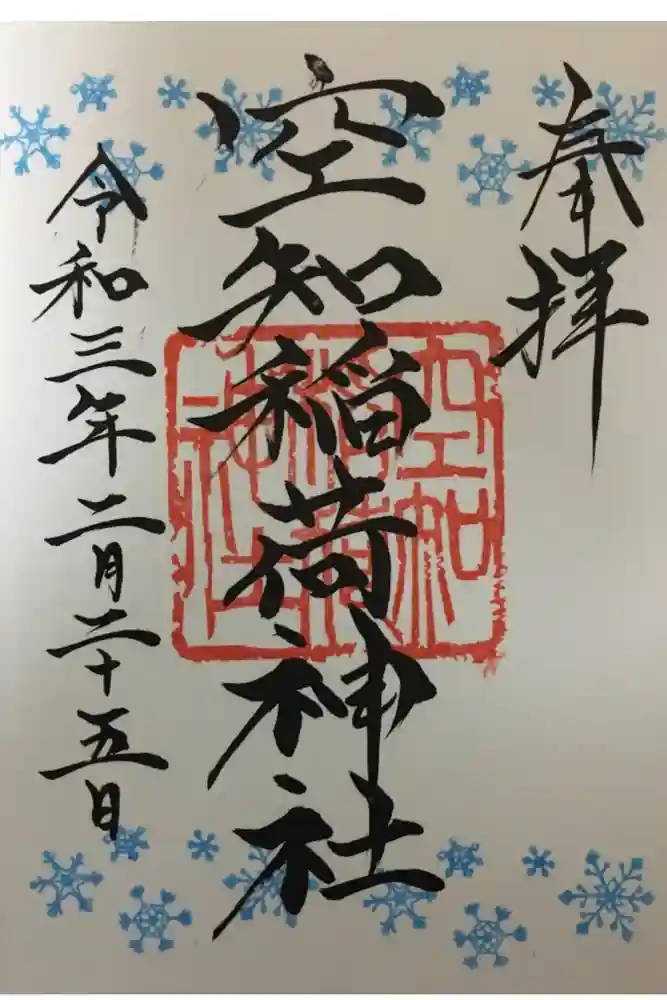 奉拝
空知稲荷神社
空知
稲荷
神社
令和三年二月二十五日